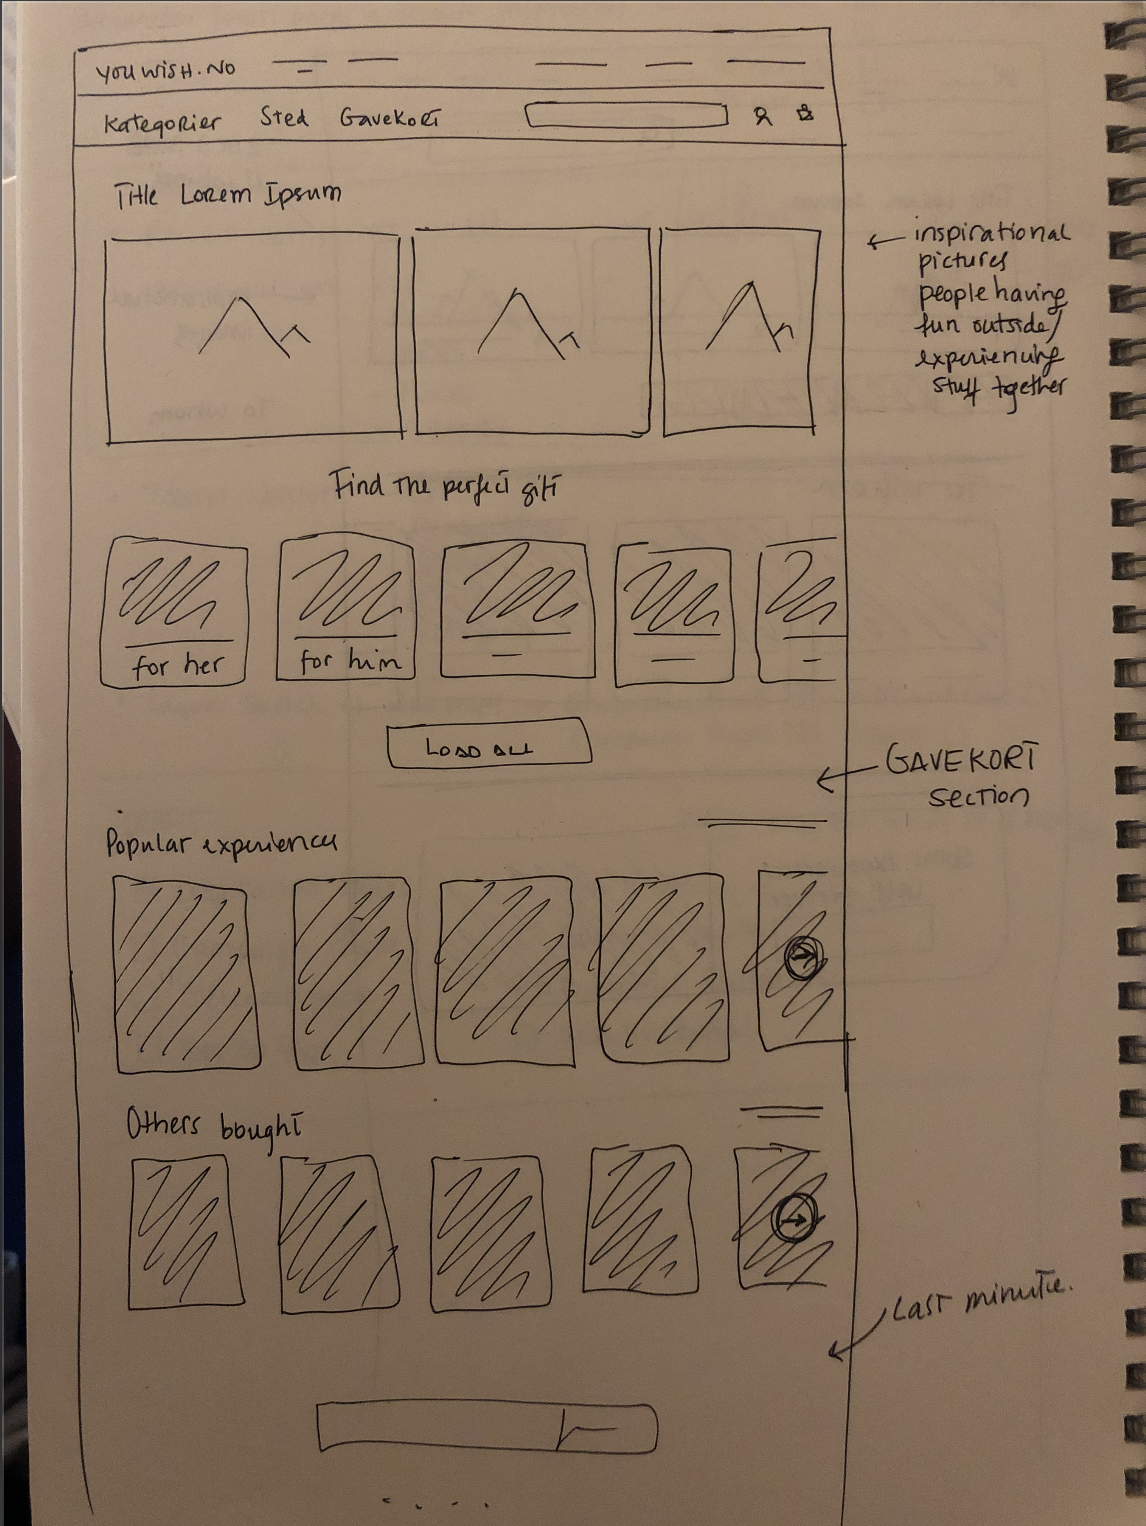 YOUWISH.NO
Kategorier Sted Gavekort
Title Lorem Ipsum
inspirational
pictures
people having
fun outside/
experiencing
stuff together
Find the perfect gift
for her for him
LOAD ALL
GAVEKORT
section
Popular experiences
Others bought
Last minute.